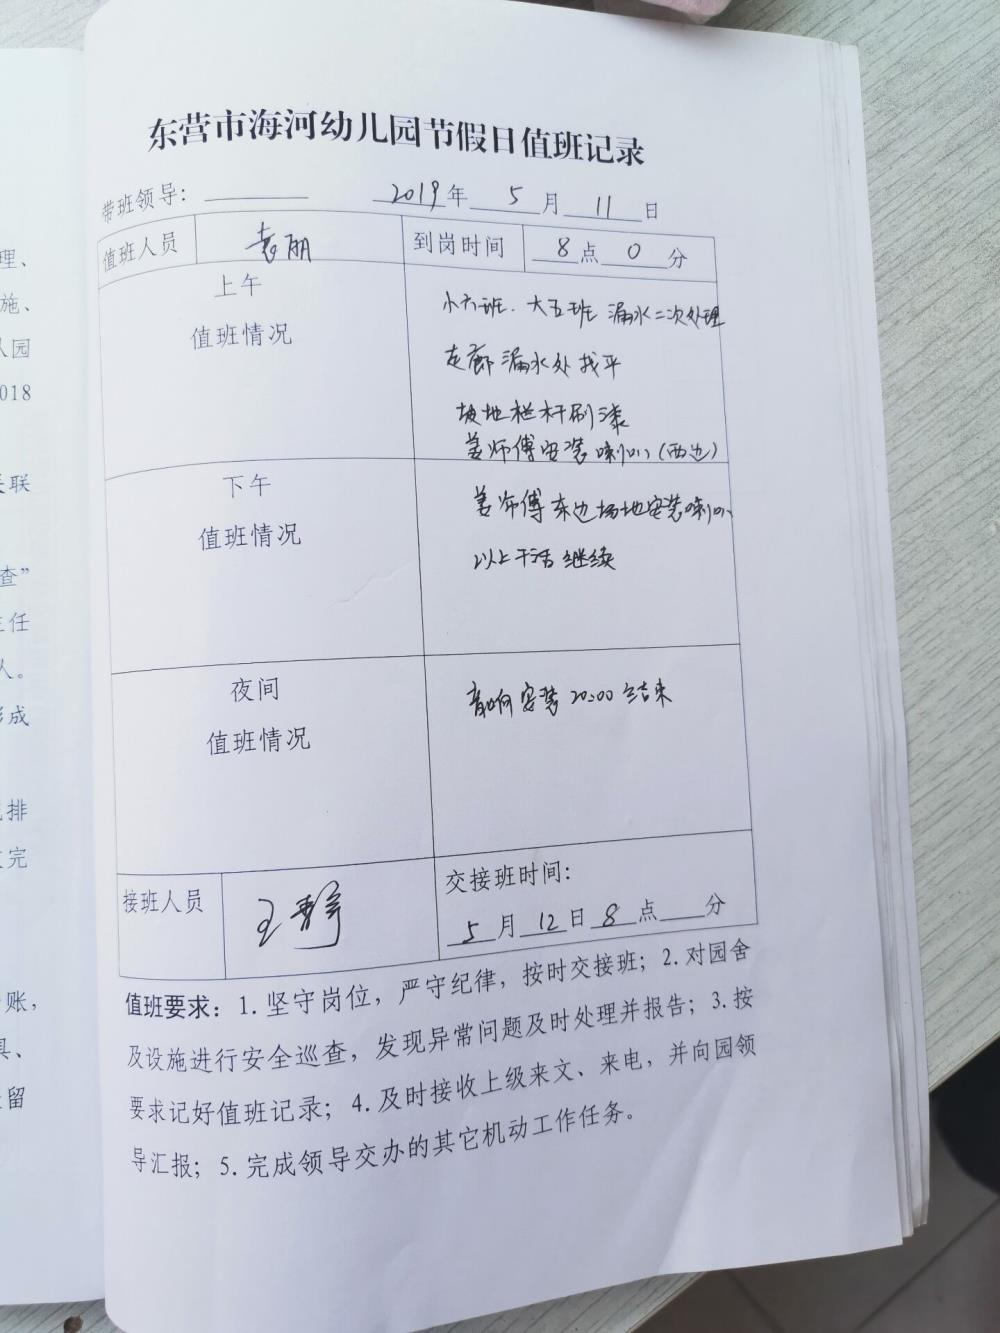 东营市海河幼儿园节假日值班记录
带班领导：
2019年 5 月 11 日
值班人员 袁丽 到岗时间 8 点 0 分
上午
值班情况
小六班、大五班 漏水二次处理
走廊漏水处找平
坡地栏杆刷漆
姜师傅安装喇叭（西边）
下午
值班情况
姜师傅东边场地安装喇叭
以上干活继续
夜间
值班情况
音响安装20:00结束
接班人员 王静 交接班时间：
5 月 12 日 8 点 分
值班要求：1.坚守岗位，严守纪律，按时交接班；2.对园舍
及设施进行安全巡查，发现异常问题及时处理并报告；3.按
要求记好值班记录；4.及时接收上级来文、来电，并向园领
导汇报；5.完成领导交办的其它机动工作任务。
理、
施、
园
018
联
查”
任
人。
形成
排
完
账，
具、
留